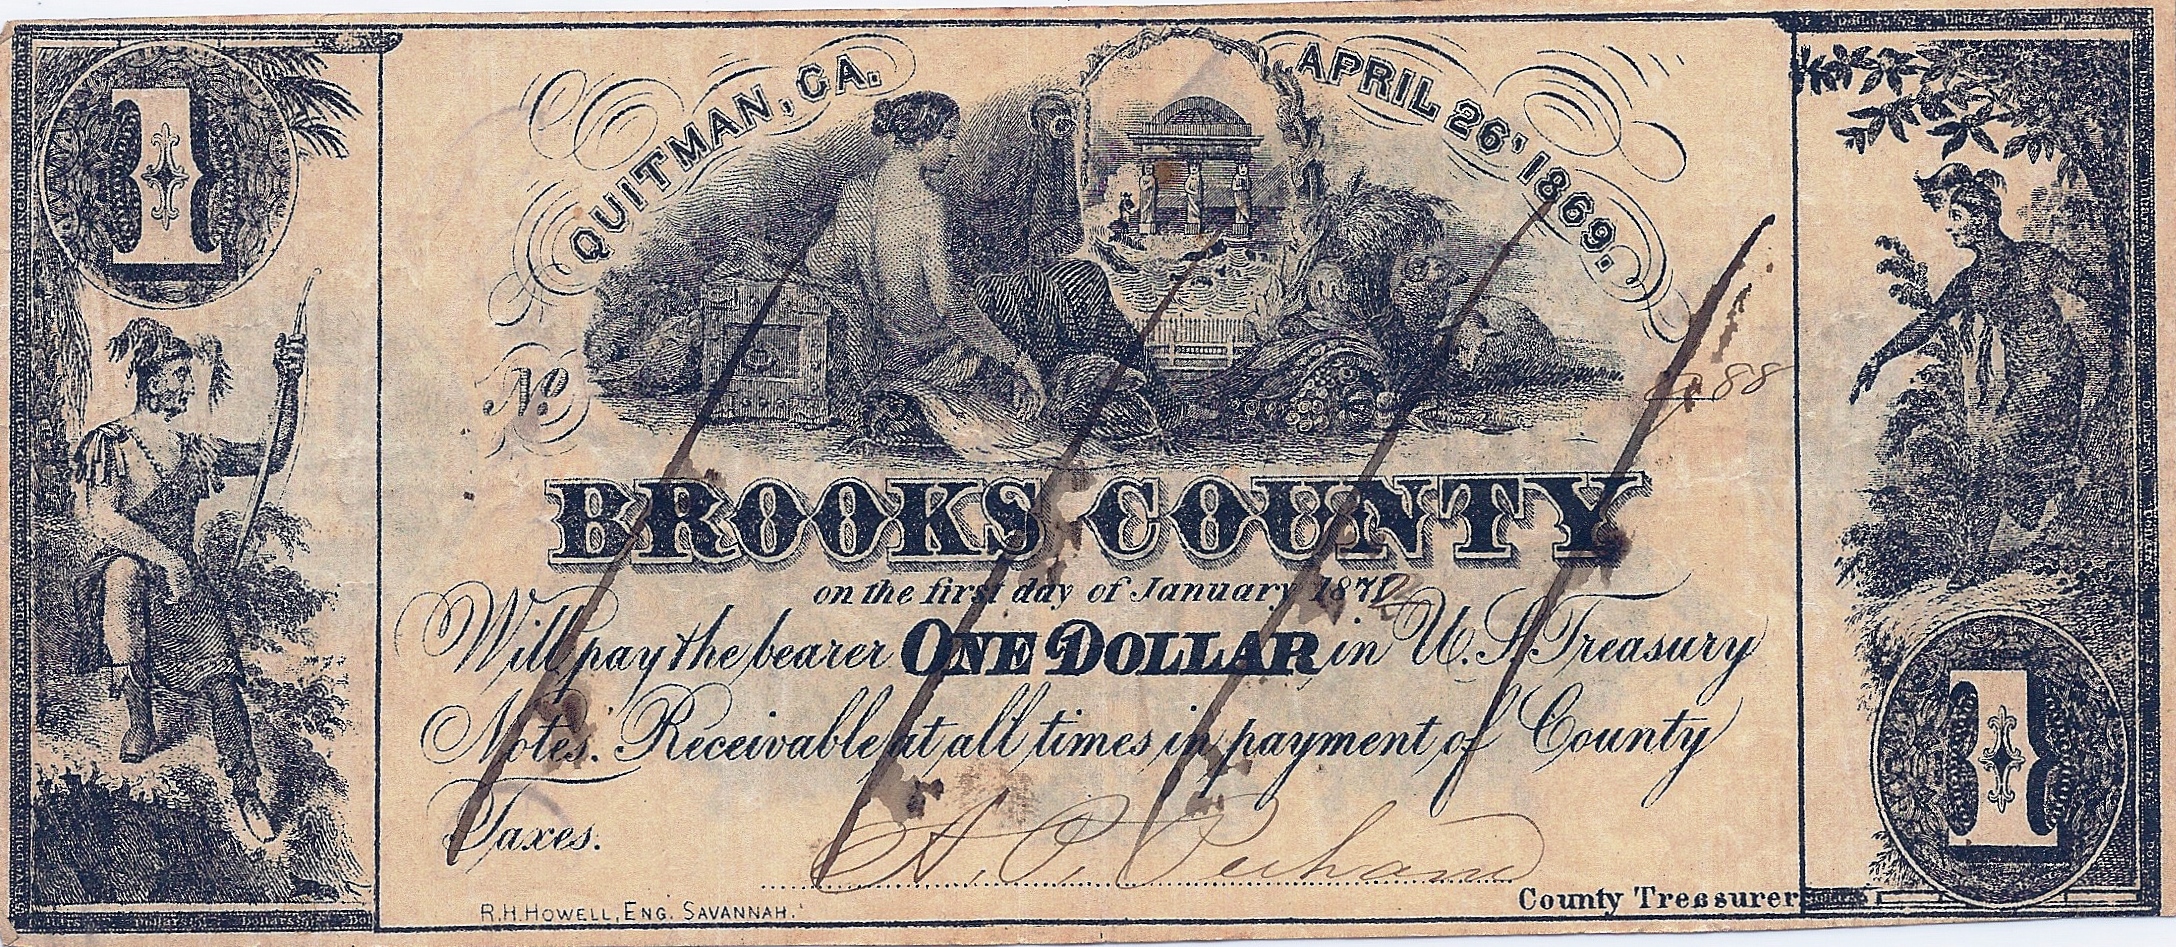 1
QUITMAN, GA. APRIL 26' 1869.
No
BROOKS COUNTY
on the first day of January 1872
Will pay the bearer ONE DOLLAR in U.S. Treasury
Notes. Receivable at all times in payment of County
Taxes.
A. P. Perham
County Treasurer
R.H. HOWELL, ENG. SAVANNAH.
1